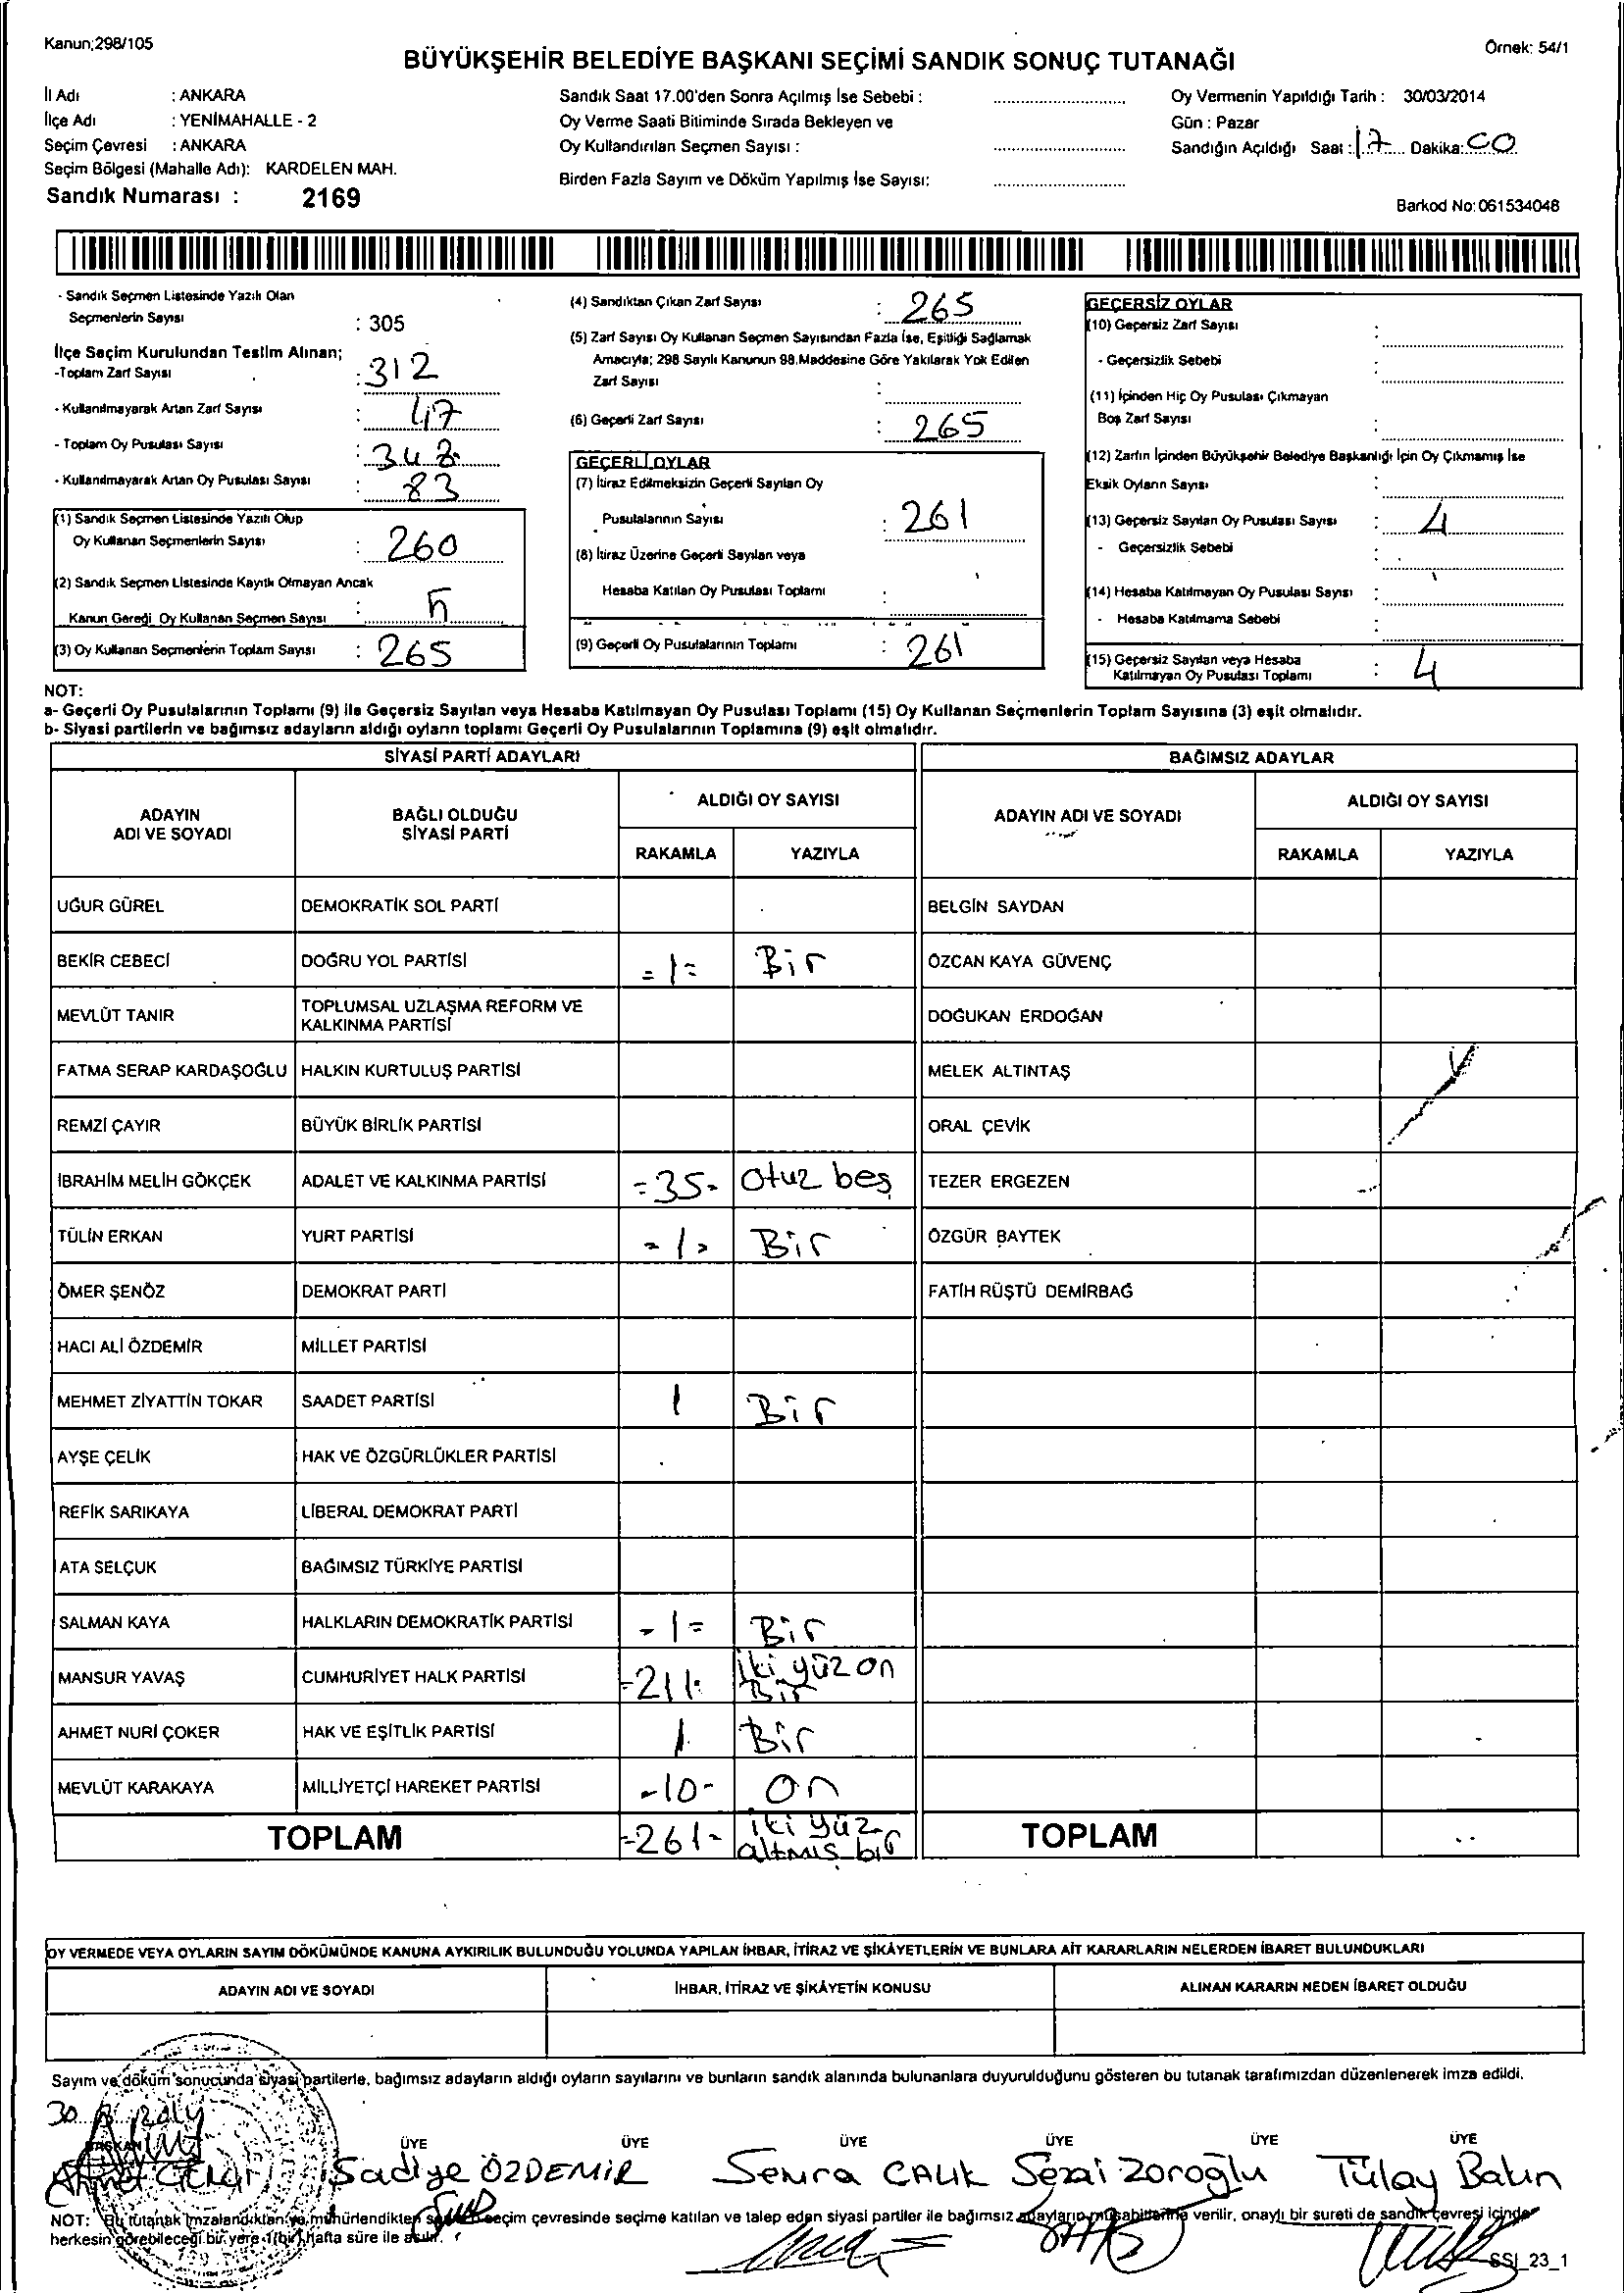 Kanun;298/105
Örnek: 54/1
BÜYÜKŞEHİR BELEDİYE BAŞKANI SEÇİMİ SANDIK SONUÇ TUTANAĞI
İl Adı : ANKARA
İlçe Adı : YENİMAHALLE - 2
Seçim Çevresi : ANKARA
Seçim Bölgesi (Mahalle Adı): KARDELEN MAH.
Sandık Numarası : 2169
Sandık Saat 17.00'den Sonra Açılmış İse Sebebi :
Oy Verme Saati Bitiminde Sırada Bekleyen ve
Oy Kullandırılan Seçmen Sayısı :
Birden Fazla Sayım ve Döküm Yapılmış İse Sayısı:
Oy Vermenin Yapıldığı Tarih : 30/03/2014
Gün : Pazar
Sandığın Açıldığı Saat : 17 Dakika: 00
Barkod No: 061534048
- Sandık Seçmen Listesinde Yazılı Olan
Seçmenlerin Sayısı : 305
İlçe Seçim Kurulundan Teslim Alınan;
-Toplam Zarf Sayısı : 312
- Kullanılmayarak Artan Zarf Sayısı : 47
- Toplam Oy Pusulası Sayısı : 348
- Kullanılmayarak Artan Oy Pusulası Sayısı : 83
(1) Sandık Seçmen Listesinde Yazılı Olup
Oy Kullanan Seçmenlerin Sayısı : 260
(2) Sandık Seçmen Listesinde Kayıtlı Olmayan Ancak
Kanun Gereği Oy Kullanan Seçmen Sayısı : 5
(3) Oy Kullanan Seçmenlerin Toplam Sayısı : 265
(4) Sandıktan Çıkan Zarf Sayısı : 265
(5) Zarf Sayısı Oy Kullanan Seçmen Sayısından Fazla İse, Eşitliği Sağlamak
Amacıyla; 298 Sayılı Kanunun 98.Maddesine Göre Yakılarak Yok Edilen
Zarf Sayısı :
(6) Geçerli Zarf Sayısı : 265
GEÇERLİ OYLAR
(7) İtiraz Edilmeksizin Geçerli Sayılan Oy
Pusulalarının Sayısı : 261
(8) İtiraz Üzerine Geçerli Sayılan veya
Hesaba Katılan Oy Pusulası Toplamı :
(9) Geçerli Oy Pusulalarının Toplamı : 261
GEÇERSİZ OYLAR
(10) Geçersiz Zarf Sayısı :
- Geçersizlik Sebebi :
(11) İçinden Hiç Oy Pusulası Çıkmayan
Boş Zarf Sayısı :
(12) Zarfın İçinden Büyükşehir Belediye Başkanlığı İçin Oy Çıkmamış İse
Eksik Oyların Sayısı
(13) Geçersiz Sayılan Oy Pusulası Sayısı : 4
- Geçersizlik Sebebi :
(14) Hesaba Katılmayan Oy Pusulası Sayısı :
- Hesaba Katılmama Sebebi :
(15) Geçersiz Sayılan veya Hesaba
Katılmayan Oy Pusulası Toplamı : 4
NOT:
a- Geçerli Oy Pusulalarının Toplamı (9) ile Geçersiz Sayılan veya Hesaba Katılmayan Oy Pusulası Toplamı (15) Oy Kullanan Seçmenlerin Toplam Sayısına (3) eşit olmalıdır.
b- Siyasi partilerin ve bağımsız adayların aldığı oyların toplamı Geçerli Oy Pusulalarının Toplamına (9) eşit olmalıdır.
SİYASİ PARTİ ADAYLARI
BAĞIMSIZ ADAYLAR
ADAYIN ADI VE SOYADI
BAĞLI OLDUĞU SİYASİ PARTİ
ALDIĞI OY SAYISI
RAKAMLA YAZIYLA
ADAYIN ADI VE SOYADI
ALDIĞI OY SAYISI
RAKAMLA YAZIYLA
UĞUR GÜREL DEMOKRATİK SOL PARTİ BELGİN SAYDAN
BEKİR CEBECİ DOĞRU YOL PARTİSİ =1= Bir ÖZCAN KAYA GÜVENÇ
MEVLÜT TANIR TOPLUMSAL UZLAŞMA REFORM VE KALKINMA PARTİSİ DOĞUKAN ERDOĞAN
FATMA SERAP KARDAŞOĞLU HALKIN KURTULUŞ PARTİSİ MELEK ALTINTAŞ
REMZİ ÇAYIR BÜYÜK BİRLİK PARTİSİ ORAL ÇEVİK
İBRAHİM MELİH GÖKÇEK ADALET VE KALKINMA PARTİSİ =35- Otuz beş TEZER ERGEZEN
TÜLİN ERKAN YURT PARTİSİ =1= Bir ÖZGÜR BAYTEK
ÖMER ŞENÖZ DEMOKRAT PARTİ FATİH RÜŞTÜ DEMİRBAĞ
HACI ALİ ÖZDEMİR MİLLET PARTİSİ
MEHMET ZİYATTİN TOKAR SAADET PARTİSİ 1 Bir
AYŞE ÇELİK HAK VE ÖZGÜRLÜKLER PARTİSİ
REFİK SARIKAYA LİBERAL DEMOKRAT PARTİ
ATA SELÇUK BAĞIMSIZ TÜRKİYE PARTİSİ
SALMAN KAYA HALKLARIN DEMOKRATİK PARTİSİ -1= Bir
MANSUR YAVAŞ CUMHURİYET HALK PARTİSİ =211= iki yüz on Bir
AHMET NURİ ÇOKER HAK VE EŞİTLİK PARTİSİ 1 Bir
MEVLÜT KARAKAYA MİLLİYETÇİ HAREKET PARTİSİ -10- On
TOPLAM =261- iki yüz altmış bir TOPLAM
OY VERMEDE VEYA OYLARIN SAYIM DÖKÜMÜNDE KANUNA AYKIRILIK BULUNDUĞU YOLUNDA YAPILAN İHBAR, İTİRAZ VE ŞİKÂYETLERİN VE BUNLARA AİT KARARLARIN NELERDEN İBARET BULUNDUKLARI
ADAYIN ADI VE SOYADI İHBAR, İTİRAZ VE ŞİKÂYETİN KONUSU ALINAN KARARIN NEDEN İBARET OLDUĞU
Sayım ve döküm sonucunda siyasi partilerle, bağımsız adayların aldığı oyların sayılarını ve bunların sandık alanında bulunanlara duyurulduğunu gösteren bu tutanak tarafımızdan düzenlenerek imza edildi.
BAŞKAN ÜYE ÜYE ÜYE ÜYE ÜYE ÜYE
Ahmet Sadiye ÖZDEMİR Semra ÇALIK Sezai Zoroğlu Tülay Batın
NOT: Bu tutanak imzalandıktan ve mühürlendikten seçim çevresinde seçime katılan ve talep eden siyasi partiler ile bağımsız adayların müşahitlerine verilir, onaylı bir sureti de sandık çevresi içinde
herkesin görebileceği bir yere 1(bir) hafta süre ile asılır.
SSI_23_1